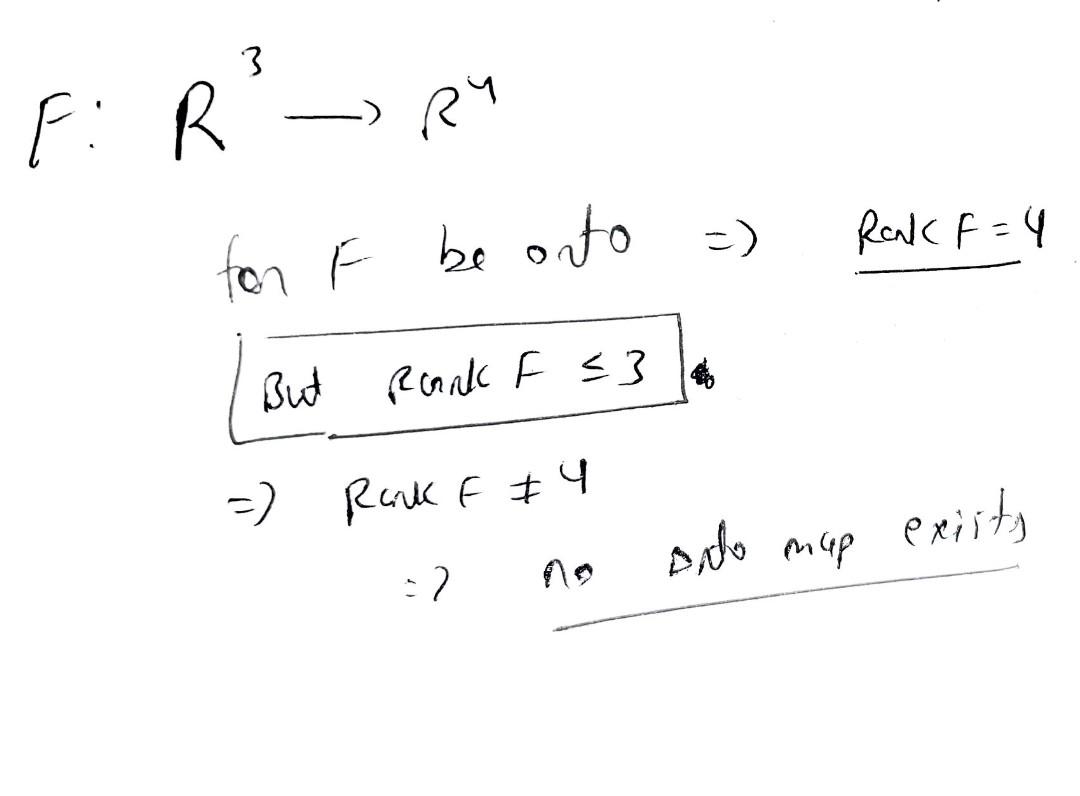 F: R³ → R⁴
for F be onto => Rank F = 4
But Rank F ≤ 3
=> Rank F ≠ 4
=> no onto map exists